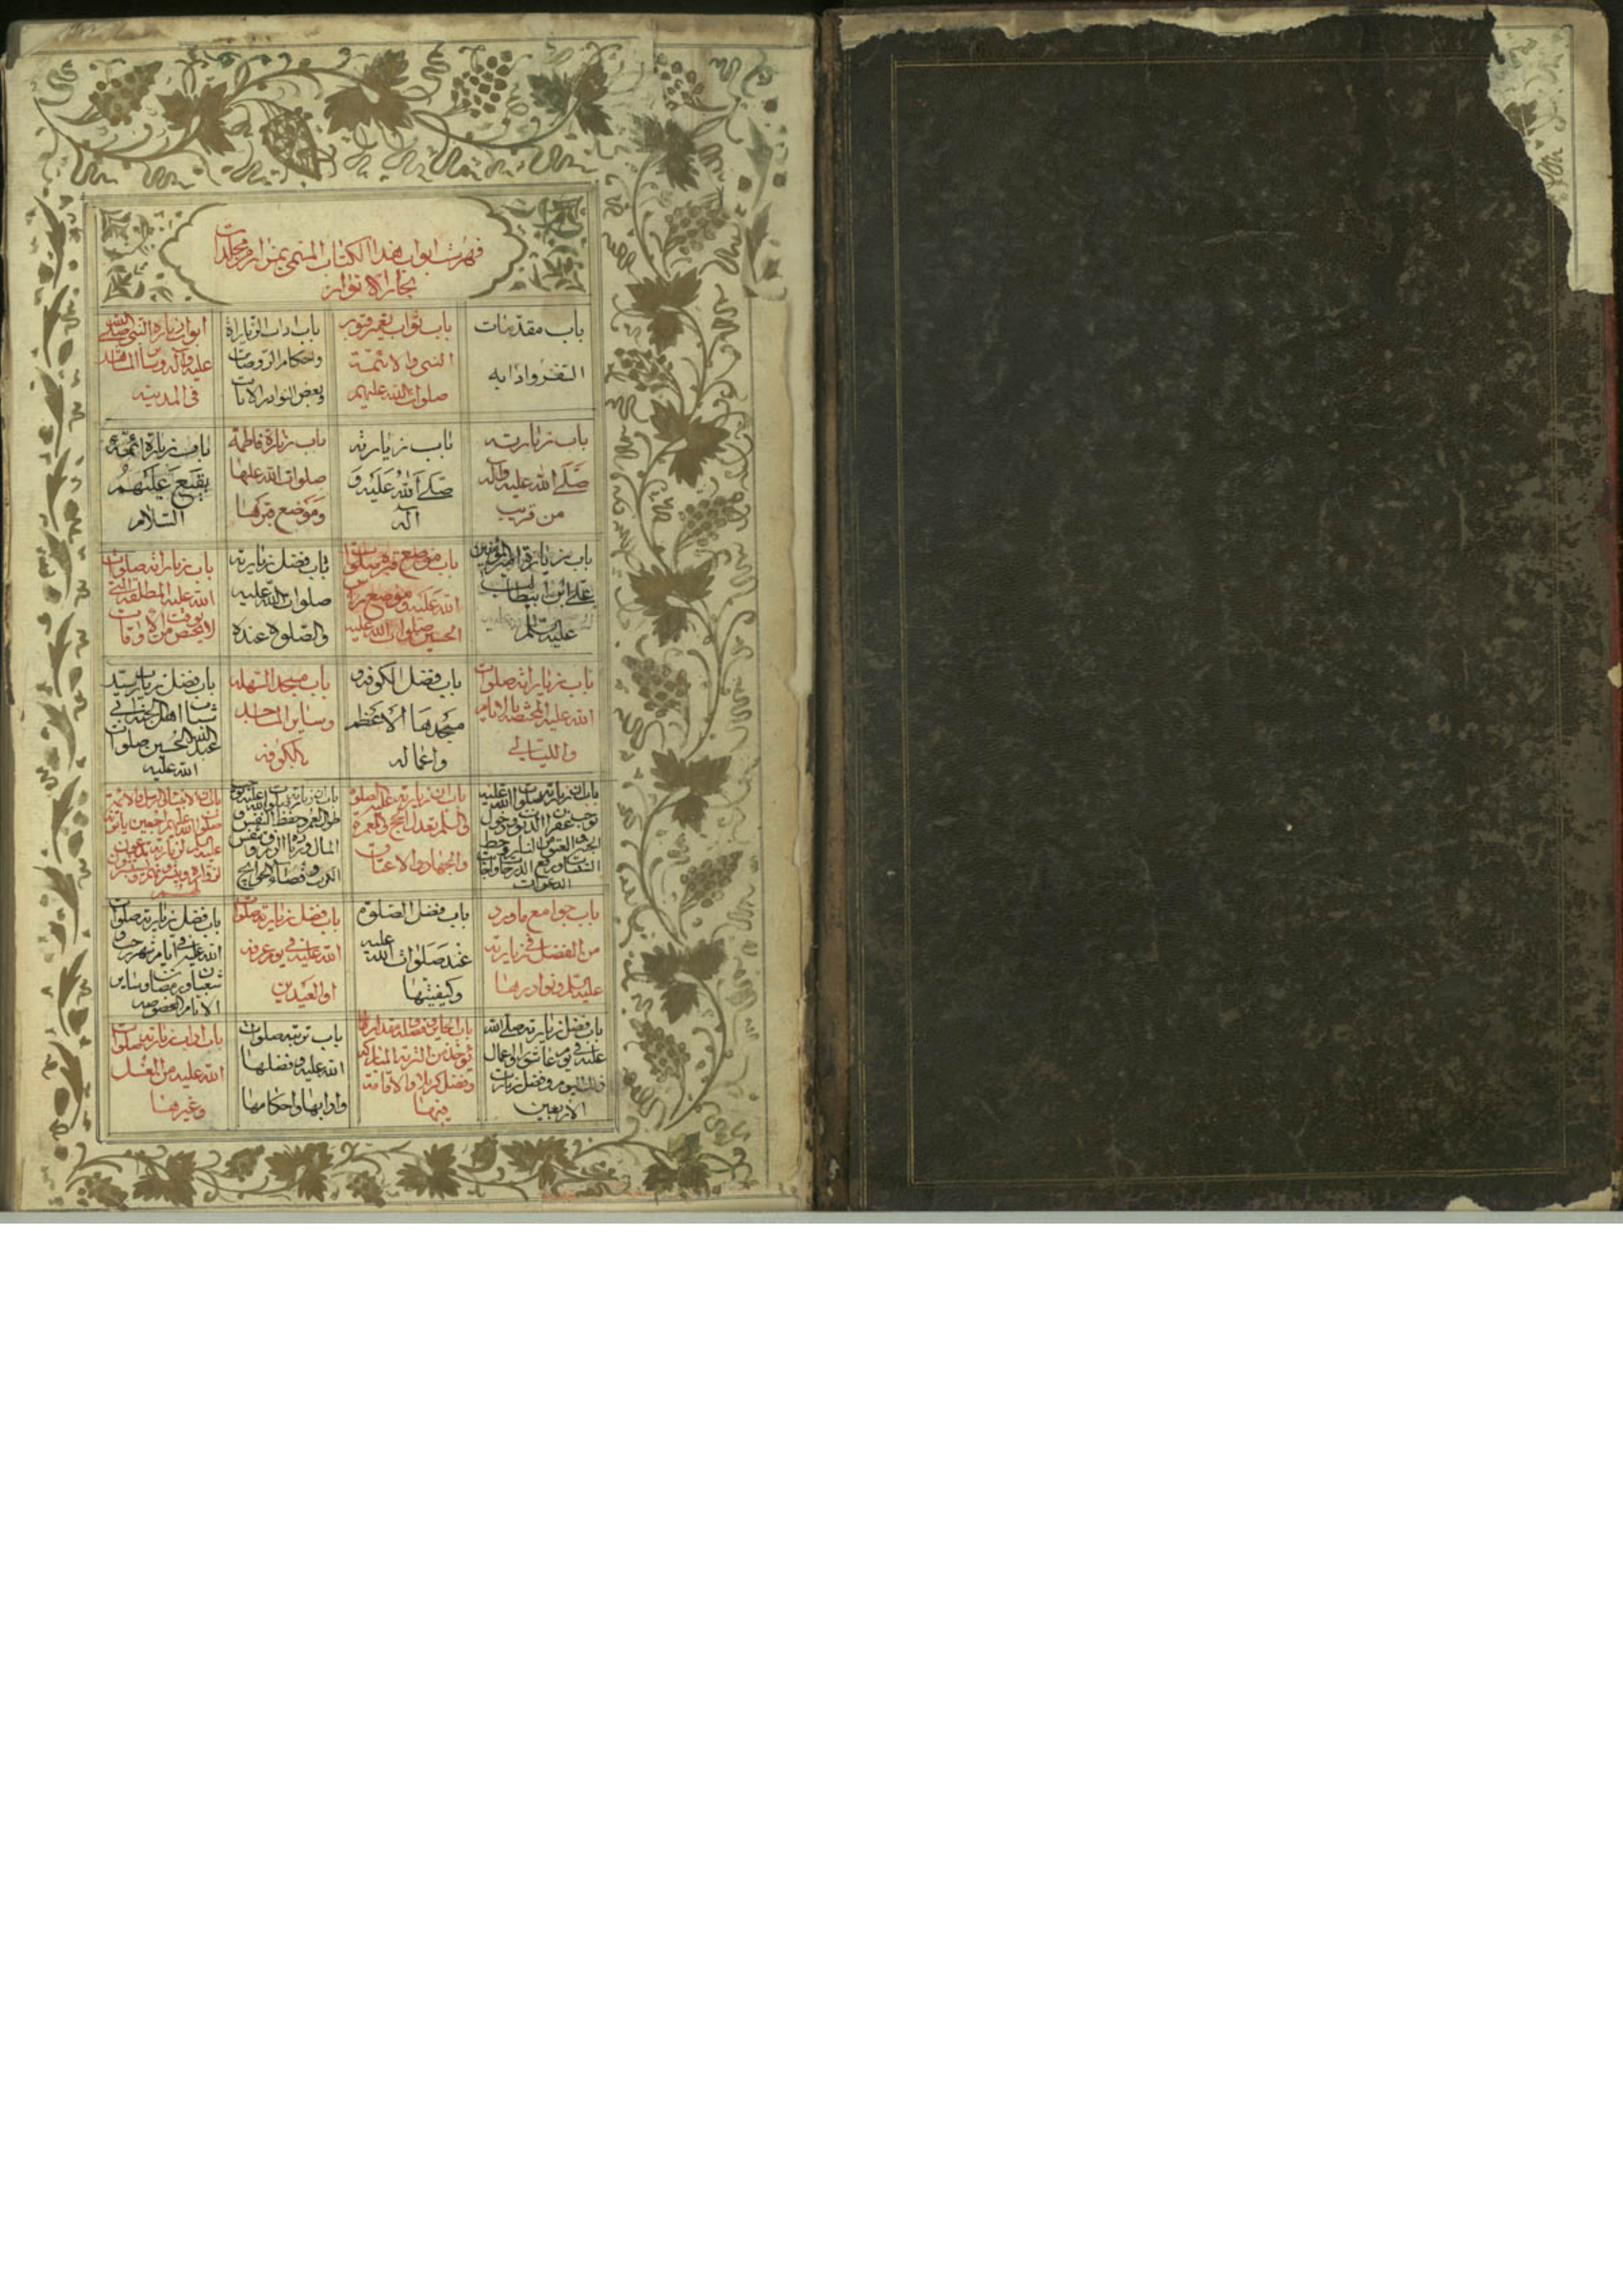 فهرست ابواب هذا الكتاب المسمى بمزار من مجلدات
بحار الانوار
باب مقدمات
السفر وادابه
باب ثواب تعمير قبور
النبي والائمة
صلوات الله عليهم
باب اداب الزيارة
واحكام الروضات
وبعض النوادر
ابواب زيارة النبي صلى الله
عليه وآله وساير المشاهد
في المدينة
باب زيارته
صلى الله عليه وآله
من قريب
باب زيارته
صلى الله عليه و
آله
باب زيارة فاطمة
صلوات الله عليها
وموضع قبرها
باب زيارة ائمة
بقيع عليهم
السلام
باب زيارة امير المؤمنين
علي ابن ابيطالب
عليه السلم
باب موضع قبره صلوات
الله عليه وموضع راس
الحسين صلوات الله عليه
باب فضل زيارته
صلوات الله عليه
والصلوة عنده
باب زياراته صلوات
الله عليه المطلقة التي
لا يختص بوقت من الاوقات
باب زياراته صلوات
الله عليه المختصة بالايام
والليالي
باب فضل الكوفة و
مسجدها الاعظم
واعماله
باب مسجد السهلة
وساير المساجد
بالكوفة
باب فضل زيارت سيد
شباب اهل الجنة ابي
عبد الله الحسين صلوات
الله عليه
باب ان زيارته صلوات الله عليه
توجب غفران الذنوب ودخول
الجنة والعتق من النار وحط
السيئات ورفع الدرجات واجابت
الدعوات
باب ان زيارته عليه الصلوة
والسلم تعدل الحج والعمرة
والجهاد والاعتاق
باب ان زيارته صلوات الله عليه توجب
طول العمر وحفظ النفس و
المال وزيادة الرزق وتنفس
الكرب وقضاء الحوائج
باب ان الانبياء والرسل والائمة
صلوات الله عليهم اجمعين ياتونه
عليه السلم لزيارته ويدعون
لزواره
لهم
باب جوامع ما ورد
من الفضل في زيارته
عليه السلم ونوادرها
باب فضل الصلوة
عنده صلوات الله عليه
وكيفيتها
باب فضل زيارته صلوات
الله عليه في يوم عرفة
او العيدين
باب فضل زيارته صلوات
الله عليه في ايام شهر رجب و
شعبان ورمضان وساير
الايام المخصوصة
باب فضل زيارته صلى الله
عليه في يوم عاشورا واعمال
ذلك اليوم وفضل زيارت
الاربعين
باب الحاير وفضله ومقدار ما
يؤخذ من التربة المباركة
وفضل كربلا والاقامة
فيها
باب تربته صلوات
الله عليه وفضلها
وادابها واحكامها
باب اداب زيارته صلوات
الله عليه من الغسل
وغيرها